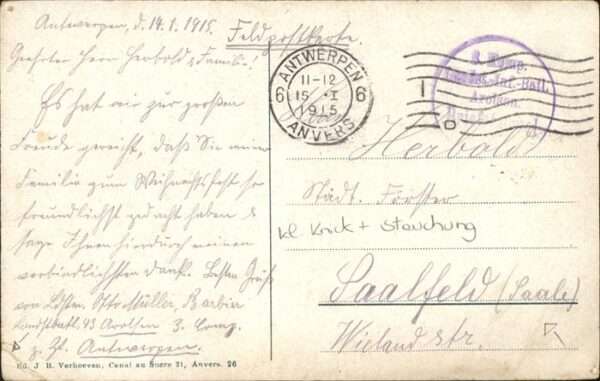 Antwerpen, d. 14.1.1915.
Feldpostkarte.
Geehrter Herr Herbold & Familie!
Es hat mir zur großen
Freude gereicht, daß Sie meiner
Familie zum Weihnachtsfest so
freundlichst gedacht haben &
sage Ihnen hierdurch meinen
verbindlichsten Dank. Besten Gruß
von Ldstm. Otto Müller, Barbier
Landstbatl. 43 Arolsen 3. Comp.
z. Zt. Antwerpen.
Ed. J. B. Verhoeven, Canal au Sucre 21, Anvers. 26
ANTWERPEN
11-12
6 15 I 6
1915
ANVERS
3. Komp.
Landst.-Inf.-Batl.
Arolsen
Herrn
Herbold
Städt. Förster
kl Knick + Stauchung
Saalfeld (Saale)
Wieland str.